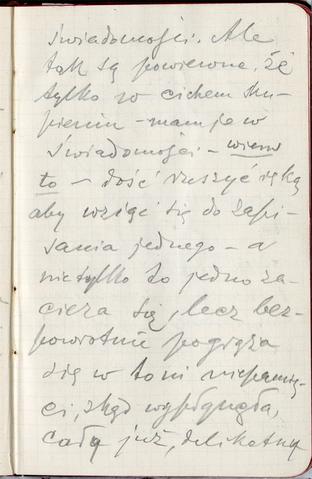 świadomości. Ale
tak są powiewne, że
tylko w cichem sku-
pieniu – mam je w
świadomości – wiem
to – dość ruszyć ręką
aby wziąć się do zapi-
sania jednego – a
nietylko to jedno za-
ciera się, lecz bez-
powrotnie pogrąża
się w toni niepamię-
ci, skąd wypłynęła,
całą już, delikatną